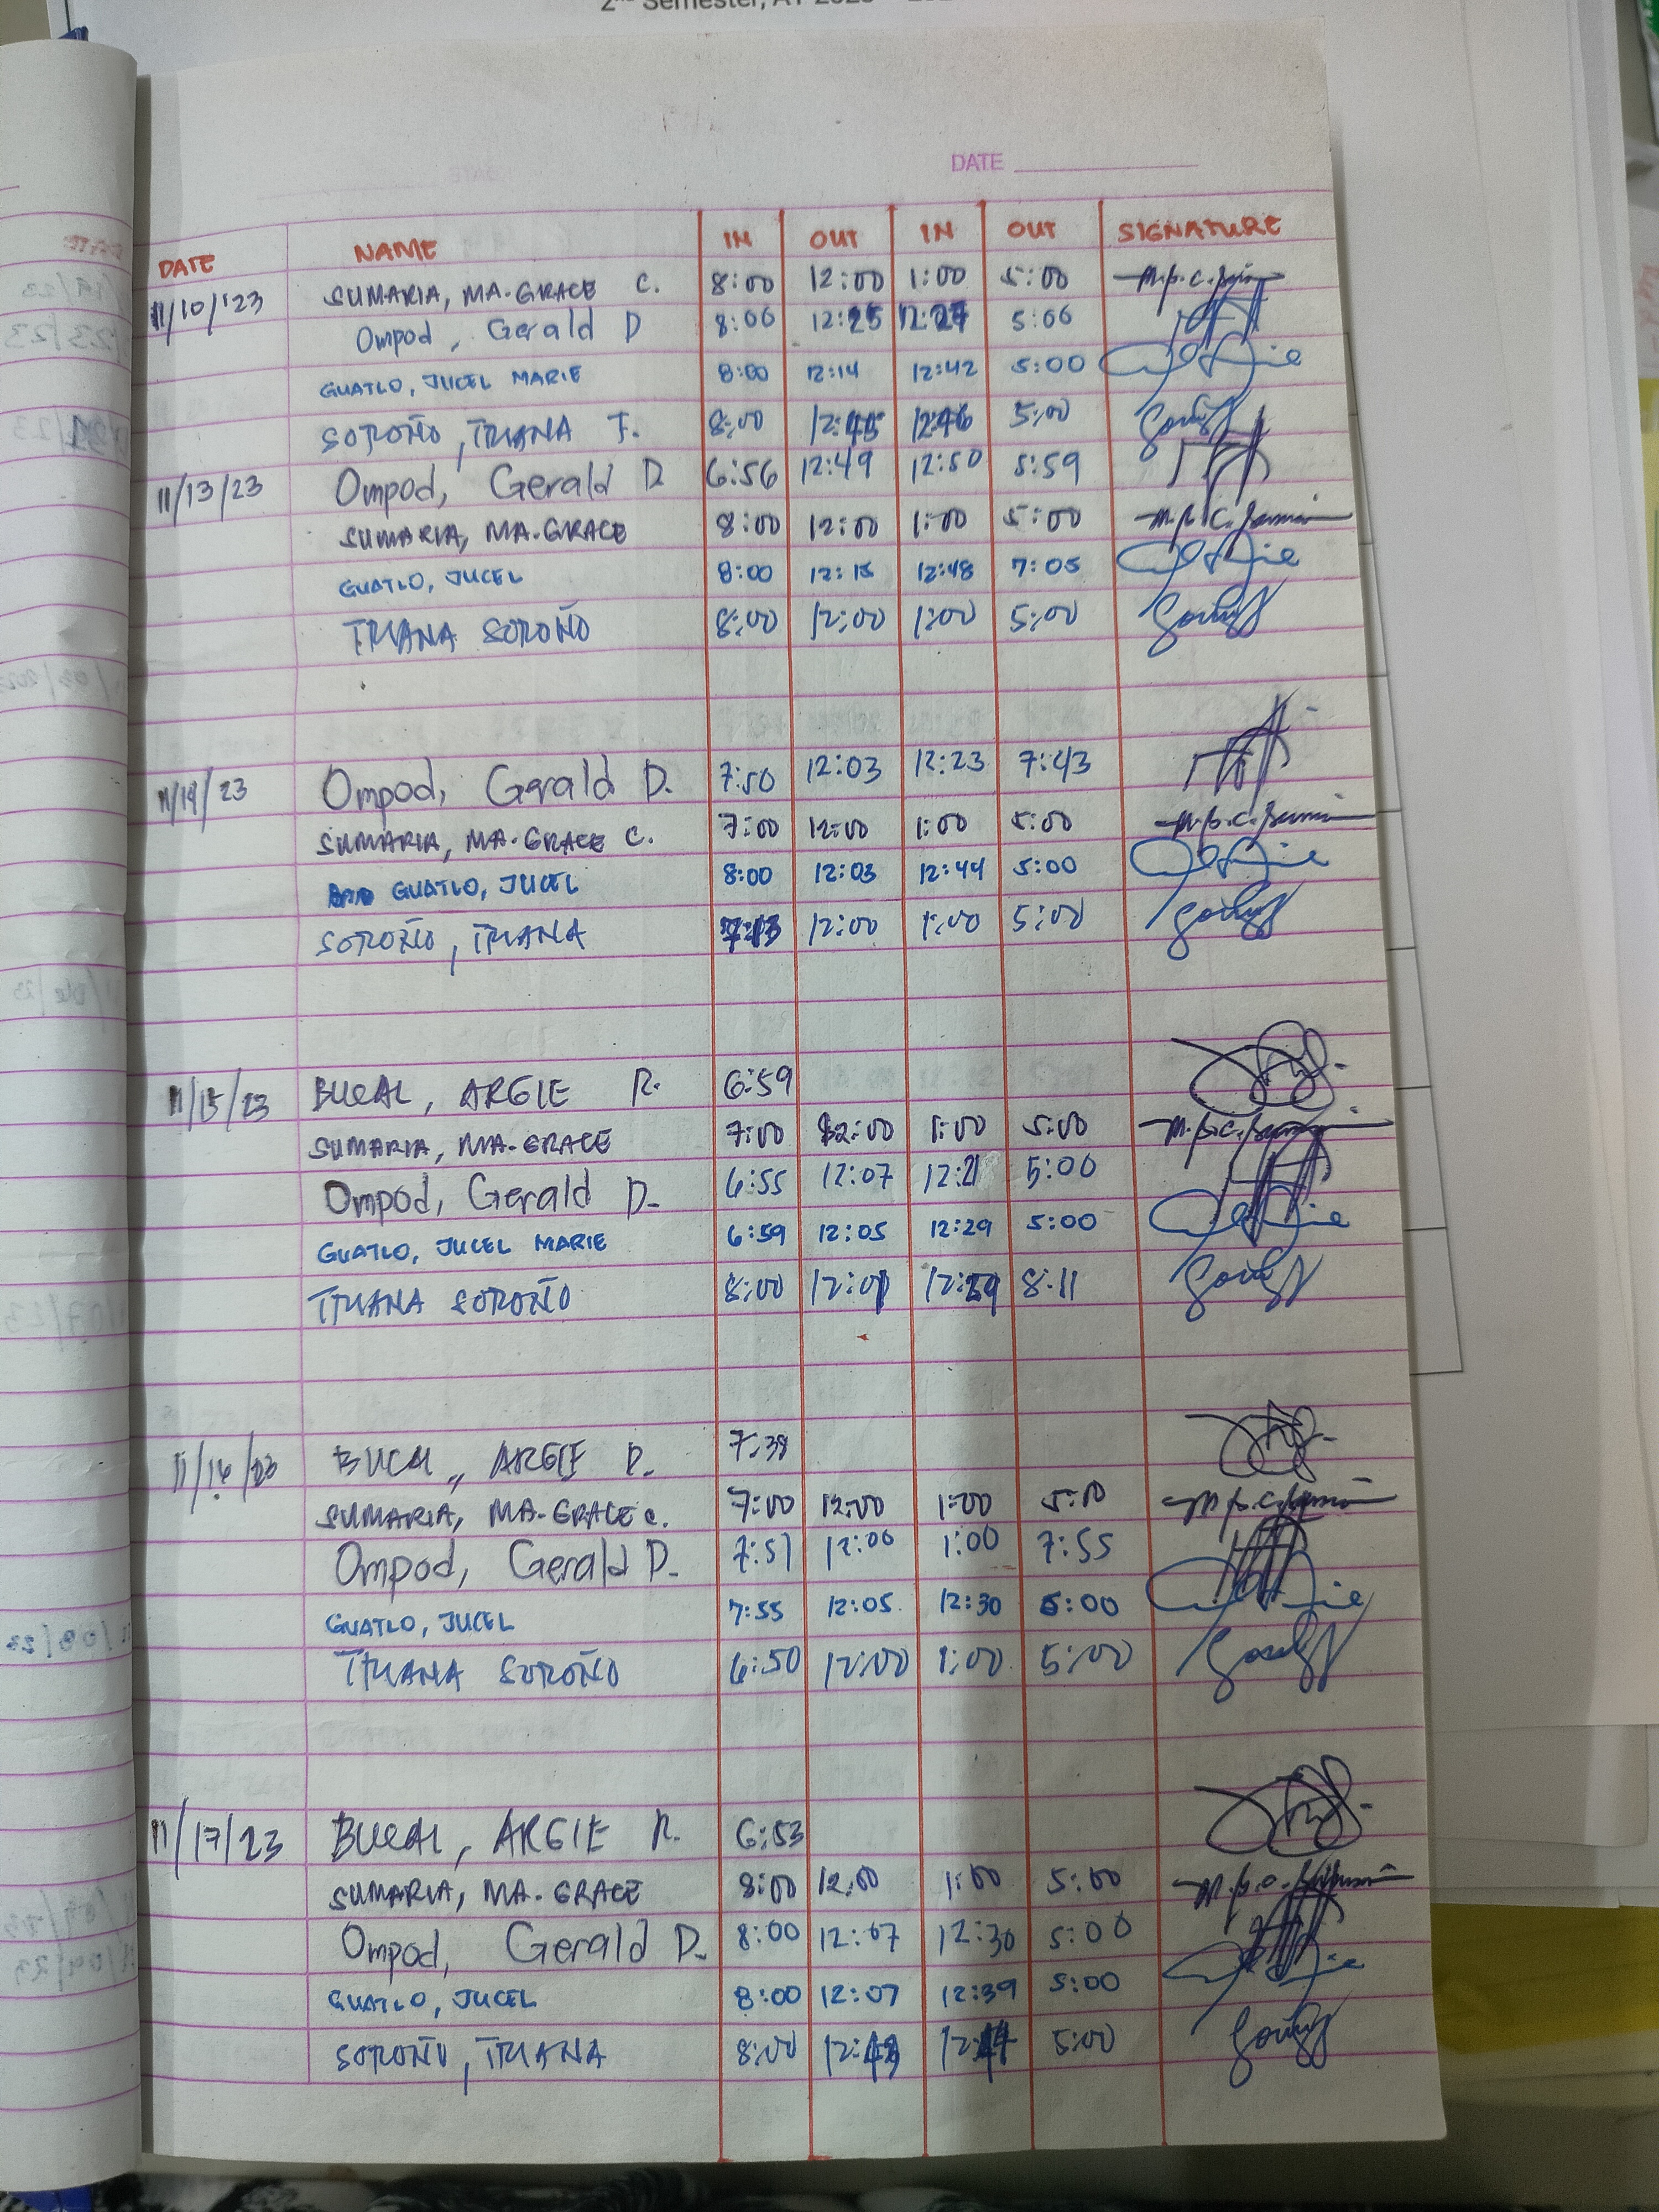 2nd Semester, AY
DATE
DATE NAME IN OUT IN OUT SIGNATURE
11/10/'23 SUMARIA, MA. GRACE C. 8:00 12:00 1:00 5:00
Ompod, Gerald D 8:06 12:25 12:27 5:06
GUATLO, JUCEL MARIE 8:00 12:14 12:42 5:00
SOROÑO, TRIANA F. 8:00 12:45 12:46 5:00
11/13/23 Ompod, Gerald D 6:56 12:49 12:50 5:59
SUMARIA, MA. GRACE 8:00 12:00 1:00 5:00
GUATLO, JUCEL 8:00 12:15 12:48 7:05
TRIANA SOROÑO 8:00 12:00 1:00 5:00
11/14/23 Ompod, Gerald D. 7:50 12:03 12:23 7:43
SUMARIA, MA. GRACE C. 7:00 12:00 1:00 5:00
GUATLO, JUCEL 8:00 12:03 12:44 5:00
SOROÑO, TRIANA 7:13 12:00 1:00 5:00
11/15/23 BUCAL, ARGIE R. 6:59
SUMARIA, MA. GRACE 7:00 12:00 1:00 5:00
Ompod, Gerald D. 6:55 12:07 12:21 5:00
GUATLO, JUCEL MARIE 6:59 12:05 12:29 5:00
TRIANA SOROÑO 8:00 12:01 12:29 8:11
11/16/23 BUCAL, ARGIE R. 7:38
SUMARIA, MA. GRACE C. 7:00 12:00 1:00 5:00
Ompod, Gerald D. 7:51 12:06 1:00 7:55
GUATLO, JUCEL 7:55 12:05 12:30 5:00
TRIANA SOROÑO 6:50 12:00 1:00 5:00
11/17/23 BUCAL, ARGIE R. 6:53
SUMARIA, MA. GRACE 8:00 12:00 1:00 5:00
Ompod, Gerald D. 8:00 12:07 12:30 5:00
GUATLO, JUCEL 8:00 12:07 12:39 5:00
SOROÑO, TRIANA 8:00 12:43 12:44 5:00